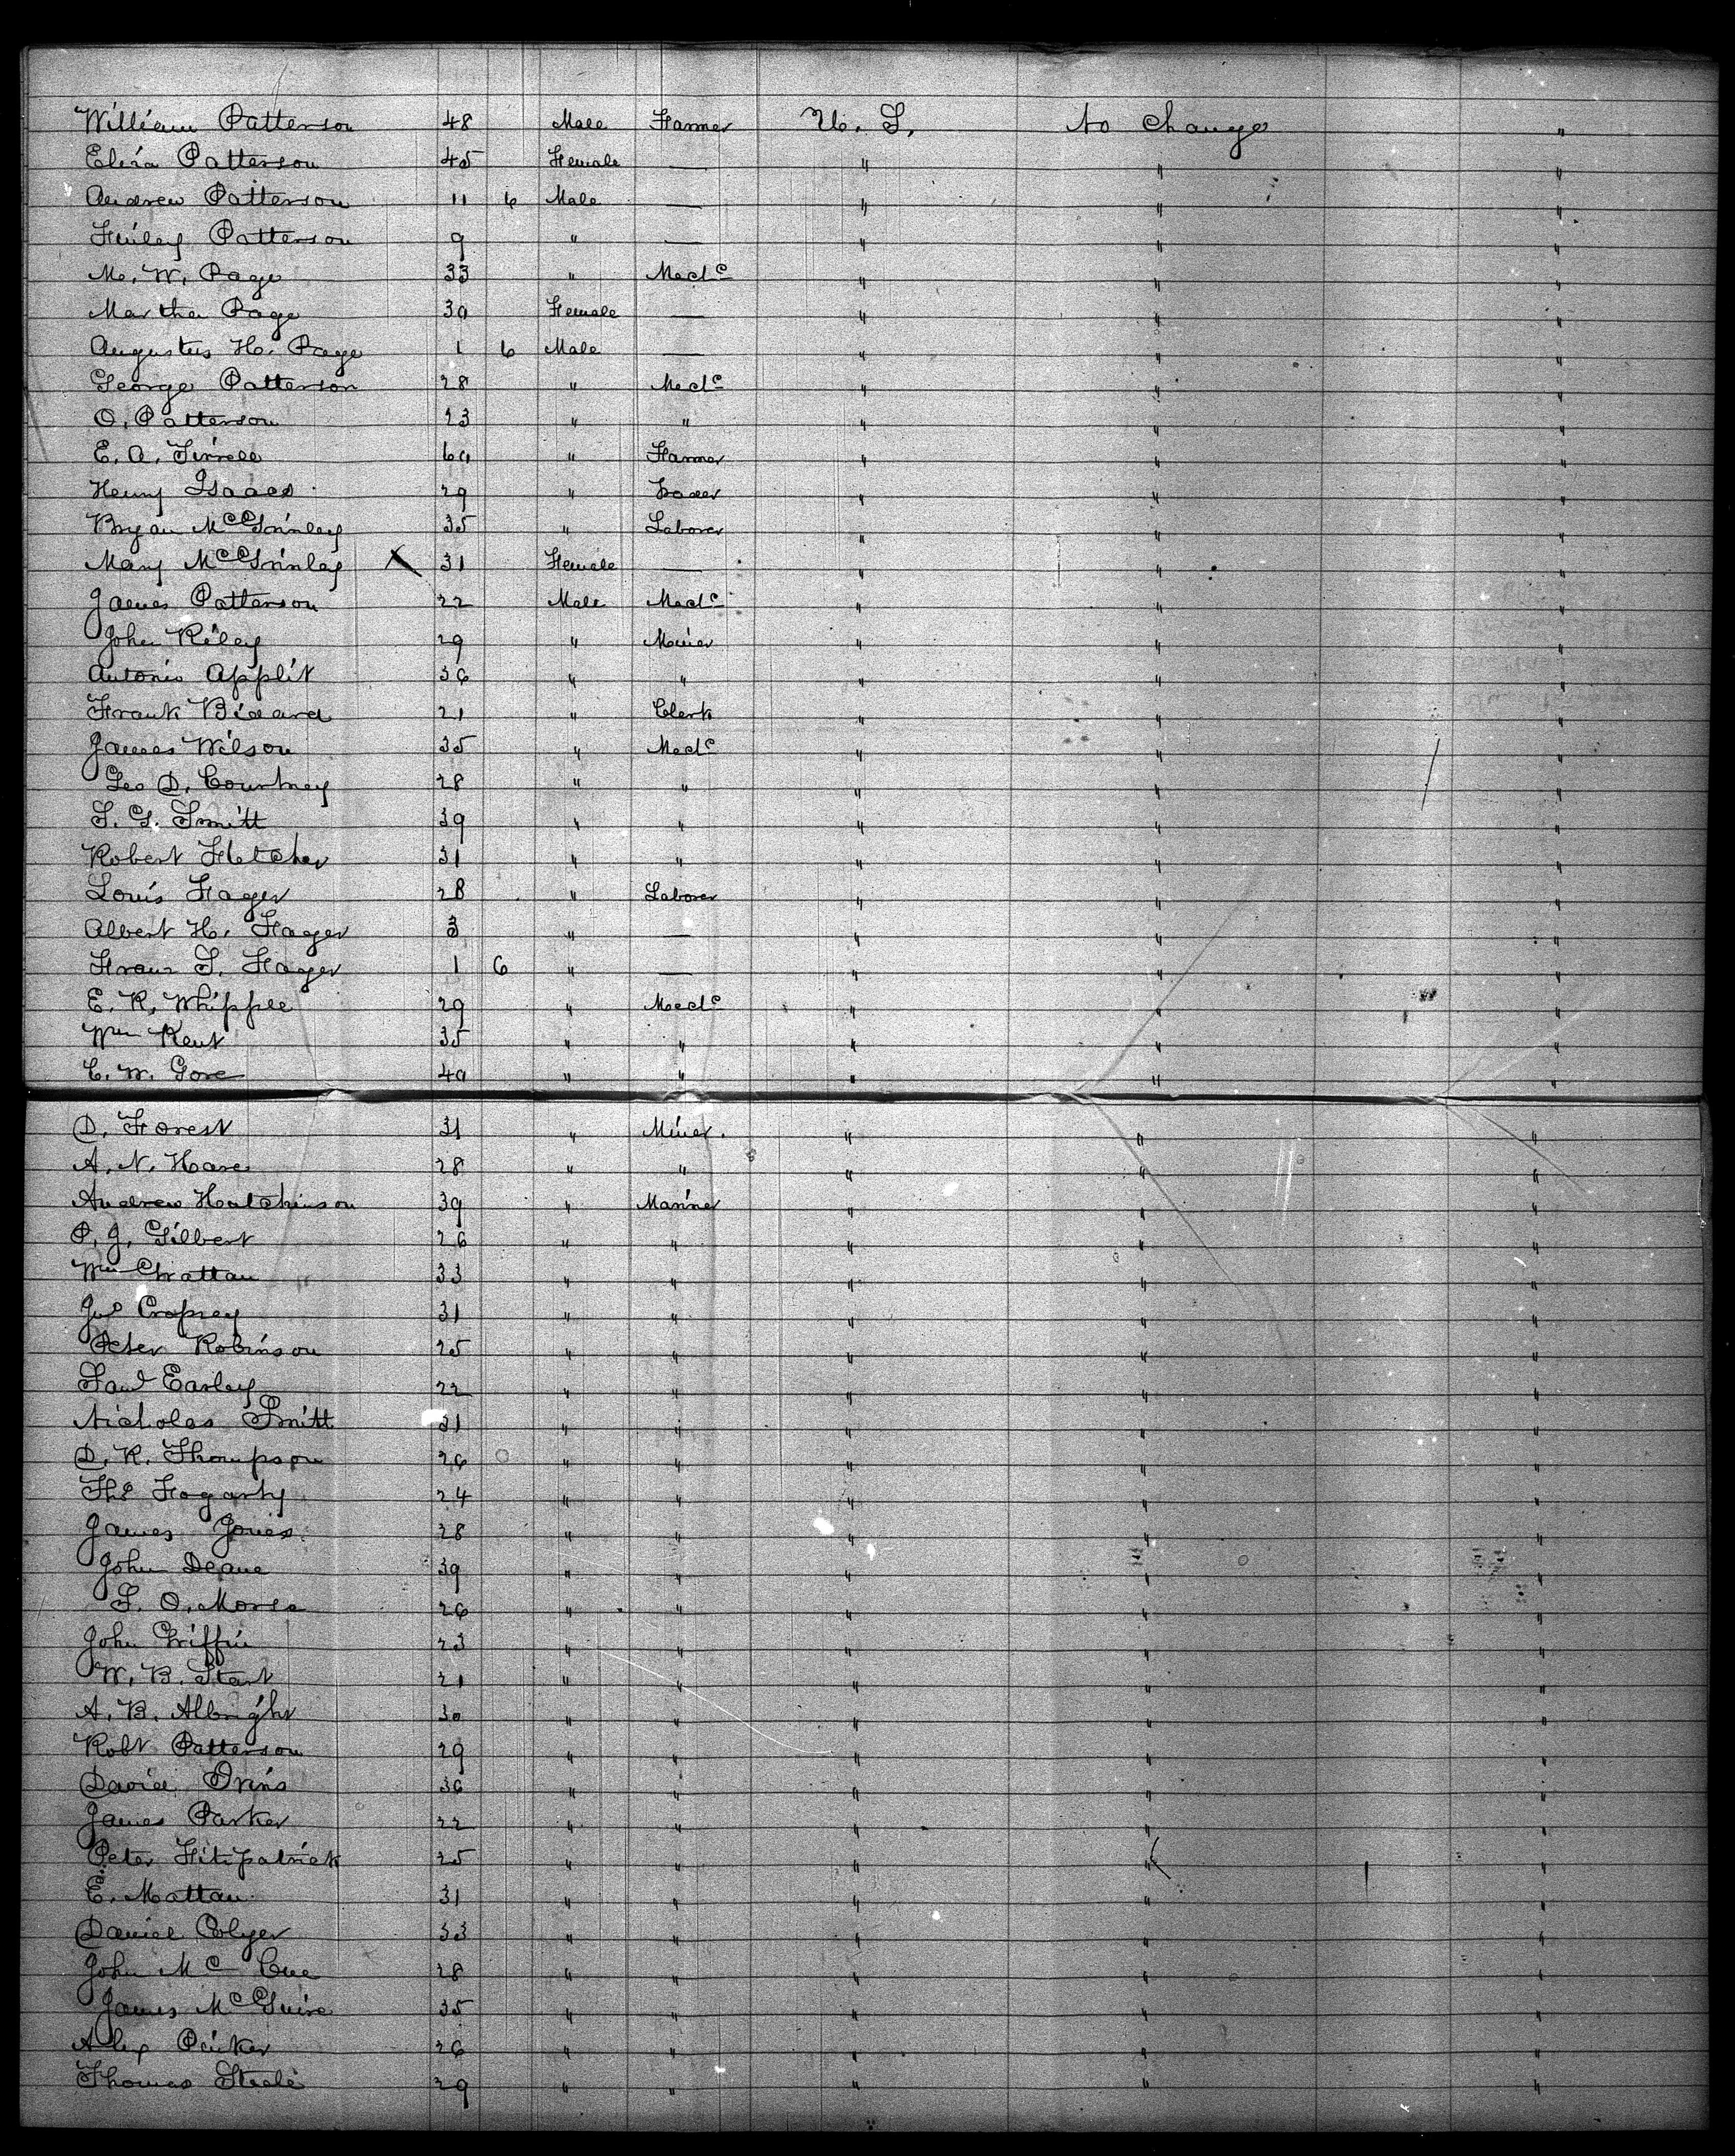 William Patterson 48 Male Farmer U. S. No Change "
Eliza Patterson 45 Female — " " "
Andrew Patterson 11 6 Male — " " "
Finley Patterson 9 " — " " "
Mc. W. Page 33 " Mecl c " " "
Martha Page 30 Female — " " "
Augustus H. Page 1 6 Male — " " "
George Patterson 28 " Mecl c " " "
O. Patterson 23 " " " " "
E. A. Tirrell 64 " Farmer " " "
Henry Isaacs 29 " Trader " " "
Bryan McGinley 35 " Laborer " " "
Mary McGinley X 31 Female — " " "
James Patterson 22 Male Mecl c " " "
John Riley 29 " Miner " " "
Antonio Applit 36 " " " " "
Frank 21 " Clerk " " "
James Wilson 35 " Mecl c " " "
Geo D. Courtney 28 " " " " "
S. G. Smitt 39 " " " " "
Robert Fletcher 31 " " " " "
Louis Hager 28 " Laborer " " "
Albert H. Hager 3 " — " " "
Franz S. Hager 1 6 " — " " "
E. R. Whipple 29 " Mecl c " " "
Wm Kent 35 " " " " "
C. W. Gore 40 " " " " "
D. Forest 31 " Miner. " " "
A. N. Hare 28 " " " " "
Andrew Hutchinson 39 " Mariner " " "
P. J. Gilbert 26 " " " " "
Wm Chattan 33 " " " " "
Jno Cropsey 31 " " " " "
Peter Robinson 25 " " " " "
Saml Earley 22 " " " " "
Nicholas Smitt 31 " " " " "
D. R. Thompson 26 " " " " "
Ths Fogarty 24 " " " " "
James Jones 28 " " " " "
John Deane 39 " " " " "
S. O. Morse 26 " " " " "
John Griffin 23 " " " " "
W. B. Start 21 " " " " "
A. B. Albright 30 " " " " "
Robt Patterson 29 " " " " "
David Orins 36 " " " " "
James Parker 22 " " " " "
Peter Fitzpatrick 25 " " " " "
E. Mattan 31 " " " " "
Daniel Colyer 33 " " " " "
John Mc Cue 28 " " " " "
James McGuire 35 " " " " "
Alex Parker 26 " " " " "
Thomas Steele 29 " " " " "